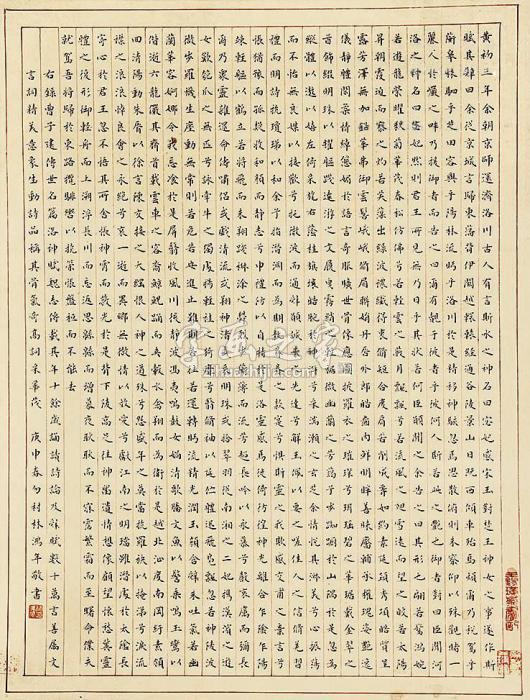 黃初三年余朝京師還濟洛川古人有言斯水之神名曰宓妃感宋玉對楚王神女之事遂作斯
賦其辭曰余從京城言歸東藩背伊闕越轘轅經通谷陵景山日既西傾車殆馬煩爾乃稅駕乎
蘅皋秣駟乎芝田容與乎陽林流眄乎洛川於是精移神駭忽焉思散俯則未察仰以殊觀睹一
麗人於巖之畔乃援御者而告之曰爾有覿於彼者乎彼何人斯若此之艷也御者對曰臣聞河
洛之神名曰宓妃然則君王所見無乃是乎其狀若何臣願聞之余告之曰其形也翩若驚鴻婉
若遊龍榮曜秋菊華茂春松仿佛兮若輕雲之蔽月飄颻兮若流風之迴雪遠而望之皎若太陽
昇朝霞迫而察之灼若芙蕖出淥波穠纖得衷脩短合度肩若削成腰如約素延頸秀項皓質呈
露芳澤無加鉛華弗御雲髻峨峨脩眉聯娟丹唇外朗皓齒內鮮明眸善睞靨輔承權瑰姿艷逸
儀靜體閑柔情綽態媚於語言奇服曠世骨像應圖披羅衣之璀璨兮珥瑤碧之華琚戴金翠之
首飾綴明珠以耀軀踐遠遊之文履曳霧綃之輕裾微幽蘭之芳藹兮步踟躕於山隅於是忽焉
縱體以遨以嬉左倚采旄右蔭桂旗攘皓腕於神滸兮采湍瀨之玄芝余情悅其淑美兮心振蕩
而不怡無良媒以接歡兮托微波而通辭願誠素之先達兮解玉佩以要之嗟佳人之信脩兮羌習
禮而明詩抗瓊珶以和予兮指潛淵而為期執眷眷之款實兮懼斯靈之我欺感交甫之棄言兮
悵猶豫而狐疑收和顏而靜志兮申禮防以自持於是洛靈感焉徙倚彷徨神光離合乍陰乍陽
竦輕軀以鶴立若將飛而未翔踐椒塗之郁烈步蘅薄而流芳超長吟以永慕兮聲哀厲而彌長
爾乃眾靈雜遝命儔嘯侶或戲清流或翔神渚或采明珠或拾翠羽從南湘之二妃攜漢濱之遊
女歎匏瓜之無匹兮詠牽牛之獨處揚輕袿之猗靡兮翳脩袖以延佇體迅飛鳧飄忽若神陵波
微步羅襪生塵動無常則若危若安進止難期若往若還轉眄流精光潤玉顏含辭未吐氣若幽
蘭華容婀娜令我忘飧於是屏翳收風川后靜波馮夷鳴鼓女媧清歌騰文魚以警乘鳴玉鸞以
偕逝六龍儼其齊首載雲車之容裔鯨鯢踴而夾轂水禽翔而為衛於是越北沚過南岡紆素領
回清陽動朱唇以徐言陳交接之大綱恨人神之道殊兮怨盛年之莫當抗羅袂以掩涕兮淚流
襟之浪浪悼良會之永絕兮哀一逝而異鄉無微情以效愛兮獻江南之明璫雖潛處於太陰長
寄心於君王忽不悟其所舍悵神宵而蔽光於是背下陵高足往神留遺情想像顧望懷愁冀靈
體之復形御輕舟而上溯浮長川而忘返思綿綿而增慕夜耿耿而不寐霑繁霜而至曙命僕夫而
就駕吾將歸乎東路攬騑轡以抗策悵盤桓而不能去
右錄曹子建傳世名篇洛神賦魏志傳載其年十餘歲誦讀詩論及辭賦數十萬言善屬文
言詞精美意象生動詩品稱其骨氣奇高詞采華茂 庚申春勾村林鴻年敬書